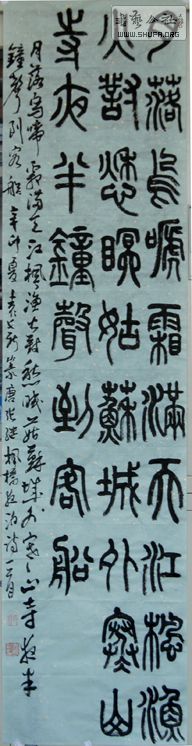 月落烏啼霜滿天江楓漁
火對愁眠姑蘇城外寒山
寺夜半鐘聲到客船
月落烏啼霜滿天江楓漁火對愁眠姑蘇城外寒山寺夜半
鐘聲到客船 辛卯夏
WWW.SHUFA.ORG